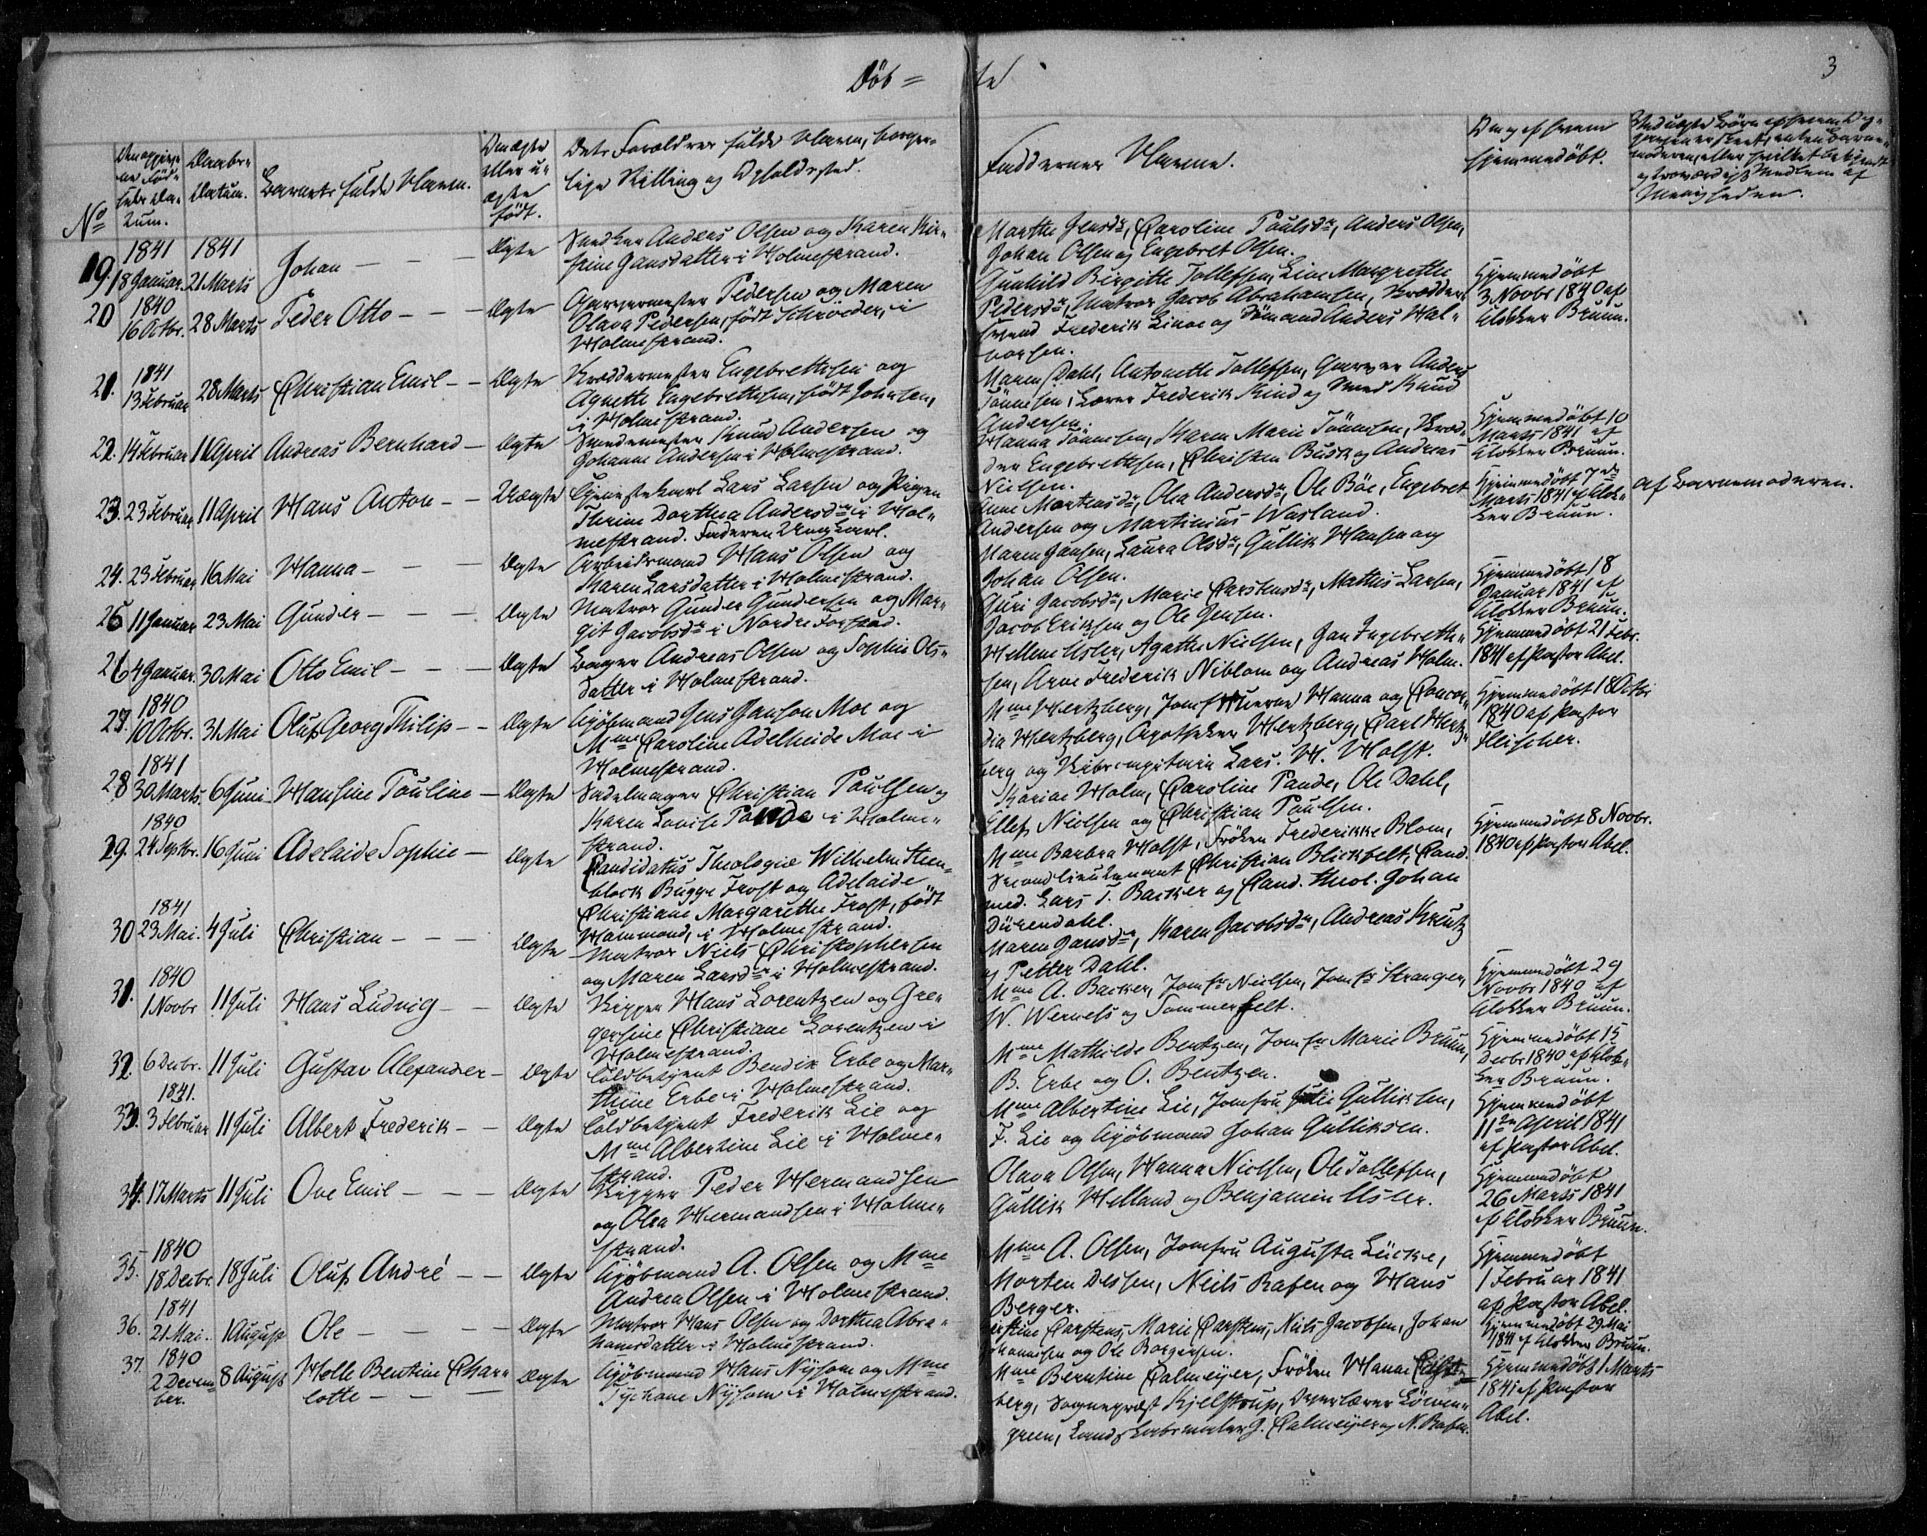 Døb=
te
3
No
Den opgiv-
ne Fød-
sels Da-
tum.
Daabs-
Datum.
Barnets fulde Navn.
Om ægte
eller u-
ægte
født.
Dets Forældres fulde Navn, borger-
lige Stilling og Opholdssted.
Faddernes Navne.
Om og af hvem
hjemmedøbt.
19. 1841 18 Januar. 1841 21 Marts Johan Ægte
Anders Olsen og Karen Kir-
stine Jansdatter i Holmestrand.
Marthe Jensdr, Caroline Paulsdr, Anders Olsen,
Johan Olsen og Engebret Olsen.
20 1840 16 Octbr. 28 Marts Peder Otto Ægte
Garvermester Pedersen og Maren
Olava Pedersen, født Schrøder, i
Holmestrand.
Gunhild Birgitte Tollefsen, Line Margrethe
Pedersdr, Matros Jacob Abrahamsen, Skrædder-
svend Frederik Linoe og Sømand Anders Hal-
vorsen.
Hjemmedøbt
3 Novbr 1840 af
Klokker Bruun.
21. 1841 13 Februar 28 Marts Christian Emil Ægte
Skræddermester Engebrethsen og
Agnethe Engebrethsen, født Johnsen,
i Holmestrand.
Maren Dahl, Antonette Tollefsen, Garver Anders
Tønnesen, Lærer Frederik Kind og Smed Knud
Andersen.
22. 14 Februar 11 April Andreas Bernhard Ægte
Smedemester Knud Andersen og
Johanne Andersen i Holmestrand.
Hanna Tønnesen, Karen Marie Tønnesen, Skræd-
der Engebrethsen, Christen Busk og Andreas
Nielsen.
Hjemmedøbt 10
Marts 1841 af
Klokker Bruun.
23. 23 Februar 11 April Hans Anton Uægte
Tjenestekarl Lars Larsen og Pigen
Thrine Dorthea Andersdr i Hol-
mestrand. Faderen Ungkarl.
Anne Mortensdr, Olea Andersdr, Ole Bøe, Engebret
Andersen og Martinius Wasland.
Hjemmedøbt 7de
Marts 1841 af Klok-
ker Bruun.
af Barnemoderen.
24. 23 Februar 16 Mai Hanna Ægte
Arbeidsmand Hans Olsen og
Maren Larsdatter i Holmestrand.
Maren Jansen, Laura Olsdr, Gullik Hansen og
Johan Olsen.
25 11 Januar 23 Mai Gunder Ægte
Matros Gunder Gundersen og Mar-
git Jacobsdr i Nordre Forstad.
Guri Jacobsdr, Marie Carstensdr, Mathis Larsen,
Jacob Eriksen og Ole Jensen.
Hjemmedøbt 18
Januar 1841 af
Klokker Bruun.
26 4 Januar. 30 Mai Otto Emil Ægte
Bager Andreas Olsen og Sophie Ols-
datter i Holmestrand.
Hellene Usler, Agathe Nielsen, Jan Ingebreth-
sen, Arve Frederik Niblom og Andreas Holm.
Hjemmedøbt 21 Febr.
1841 af Pastor Abel.
27. 1840 10 Octbr. 31 Mai Oluf Georg Philip Ægte
Kjøbmand Jens Janson Moe og
Mme Caroline Adelheide Moe i
Holmestrand.
Mme Hertzberg, Jomfruerne Hanna og Concor-
dia Hertzberg, Apotheker Hertzberg, Carl Hertz-
berg og Skibscapitain Lars. H. Holst.
Hjemmedøbt 18 Octbr
1840 af Pastor
Fleischer.
28 1841 30 Marts. 6 Juni Hansine Pauline Ægte
Sadelmager Christian Paulsen og
Karen Lovise Pande i Holme-
strand.
Karine Holm, Caroline Pande, Ole Dahl,
Ellef Nielsen og Christian Paulsen.
29. 1840 24 Septbr. 16 Juni Adelaide Sophie Ægte
Candidatus Theologiæ Wilhelm Steen-
block Bugge Frost og Adelaide
Christiane Margarethe Frost, født
Hammond, i Holmestrand.
Mme Barbra Holst, Frøken Frederikke Blom,
Secondlieutenant Christian Blickfelt, Cand.
med. Lars T. Backer og Cand. theol. Johan
Dürendahl.
Hjemmedøbt 8 Novbr.
1840 af Pastor Abel.
30 1841 23 Mai. 4 Juli Christian Ægte
Matros Niels Christophersen
og Maren Larsdr i Holmestrand.
Maren Jansdr, Karen Jacobsdr, Andreas Kreutz
og Petter Dahl.
31. 1840 1 Novbr 11 Juli Hans Ludvig Ægte
Skipper Hans Lorentzen og Gre-
gersine Christiane Lorentzen i
Holmestrand.
Mme A. Backer, Jomfr Nielsen, Jomfr Stranger,
W. Werwess og Sommerfelt.
Hjemmedøbt 29
Novbr 1840 af
Klokker Bruun.
32. 6 Decbr. 11 Juli Gustav Alexander Ægte
Toldbetjent Bendix Erbe og Mar-
thine Erbe i Holmestrand.
Mme Mathilde Bentzen, Jomfr Marie Bruun,
B. Erbe og O. Bentzen.
Hjemmedøbt 15
Decbr 1840 af Klok-
ker Bruun.
33. 1841. 3 Februar 11 Juli Albert Frederik Ægte
Toldbetjent Frederik Lie og
Mme Albertine Lie i Holme-
strand.
Mme Albertine Lie, Jomfru Julie Gulliksen,
F. Lie og Kjøbmand Johan Gulliksen.
Hjemmedøbt
11te April 1841
af Pastor Abel.
34. 17 Marts 11 Juli Ove Emil Ægte
Skipper Peder Hermandsen
og Olea Hermandsen i Holme-
strand.
Olava Olsen, Hanna Nielsen, Ole Tollefsen,
Gullik Helland og Benjamin Usler.
Hjemmedøbt
26 Marts 1841
af Klokker Bruun.
35. 1840 18 Decbr. 18 Juli Oluf André Ægte
Kjøbmand A. Olsen og Mme
Andrea Olsen i Holmestrand.
Mme A. Olsen, Jomfru Augusta Lücke,
Morten Dessen, Niels Rafen og Hans
Berger.
Hjemmedøbt
1 Februar 1841
af Pastor Abel.
36. 1841 21 Mai. 1 August Ole Ægte
Matros Hans Olsen og Dorthea Abra-
hamsdatter i Holmestrand.
Carstens, Marie Carstens, Niels Jacobsen, Johan
og Ole Borgersen.
Hjemmedøbt 29 Mai
1841 af Klokker Bruun.
37. 1840 2 Decem-
ber. 8 August Holle Bentine Char-
lotte Ægte
Kjøbmand Hans Nysom og Mme
Nysom i Holmestrand.
Mme Berntine Calmeijer, Frøken Hanne
berg, Sogneprest Kjelstrup, Overlærer Löwen-
green, Landskabsmaler J. Calmeijer og N. Rafen.
Hjemmedøbt 1 Marts
1841 af Pastor
Abel.